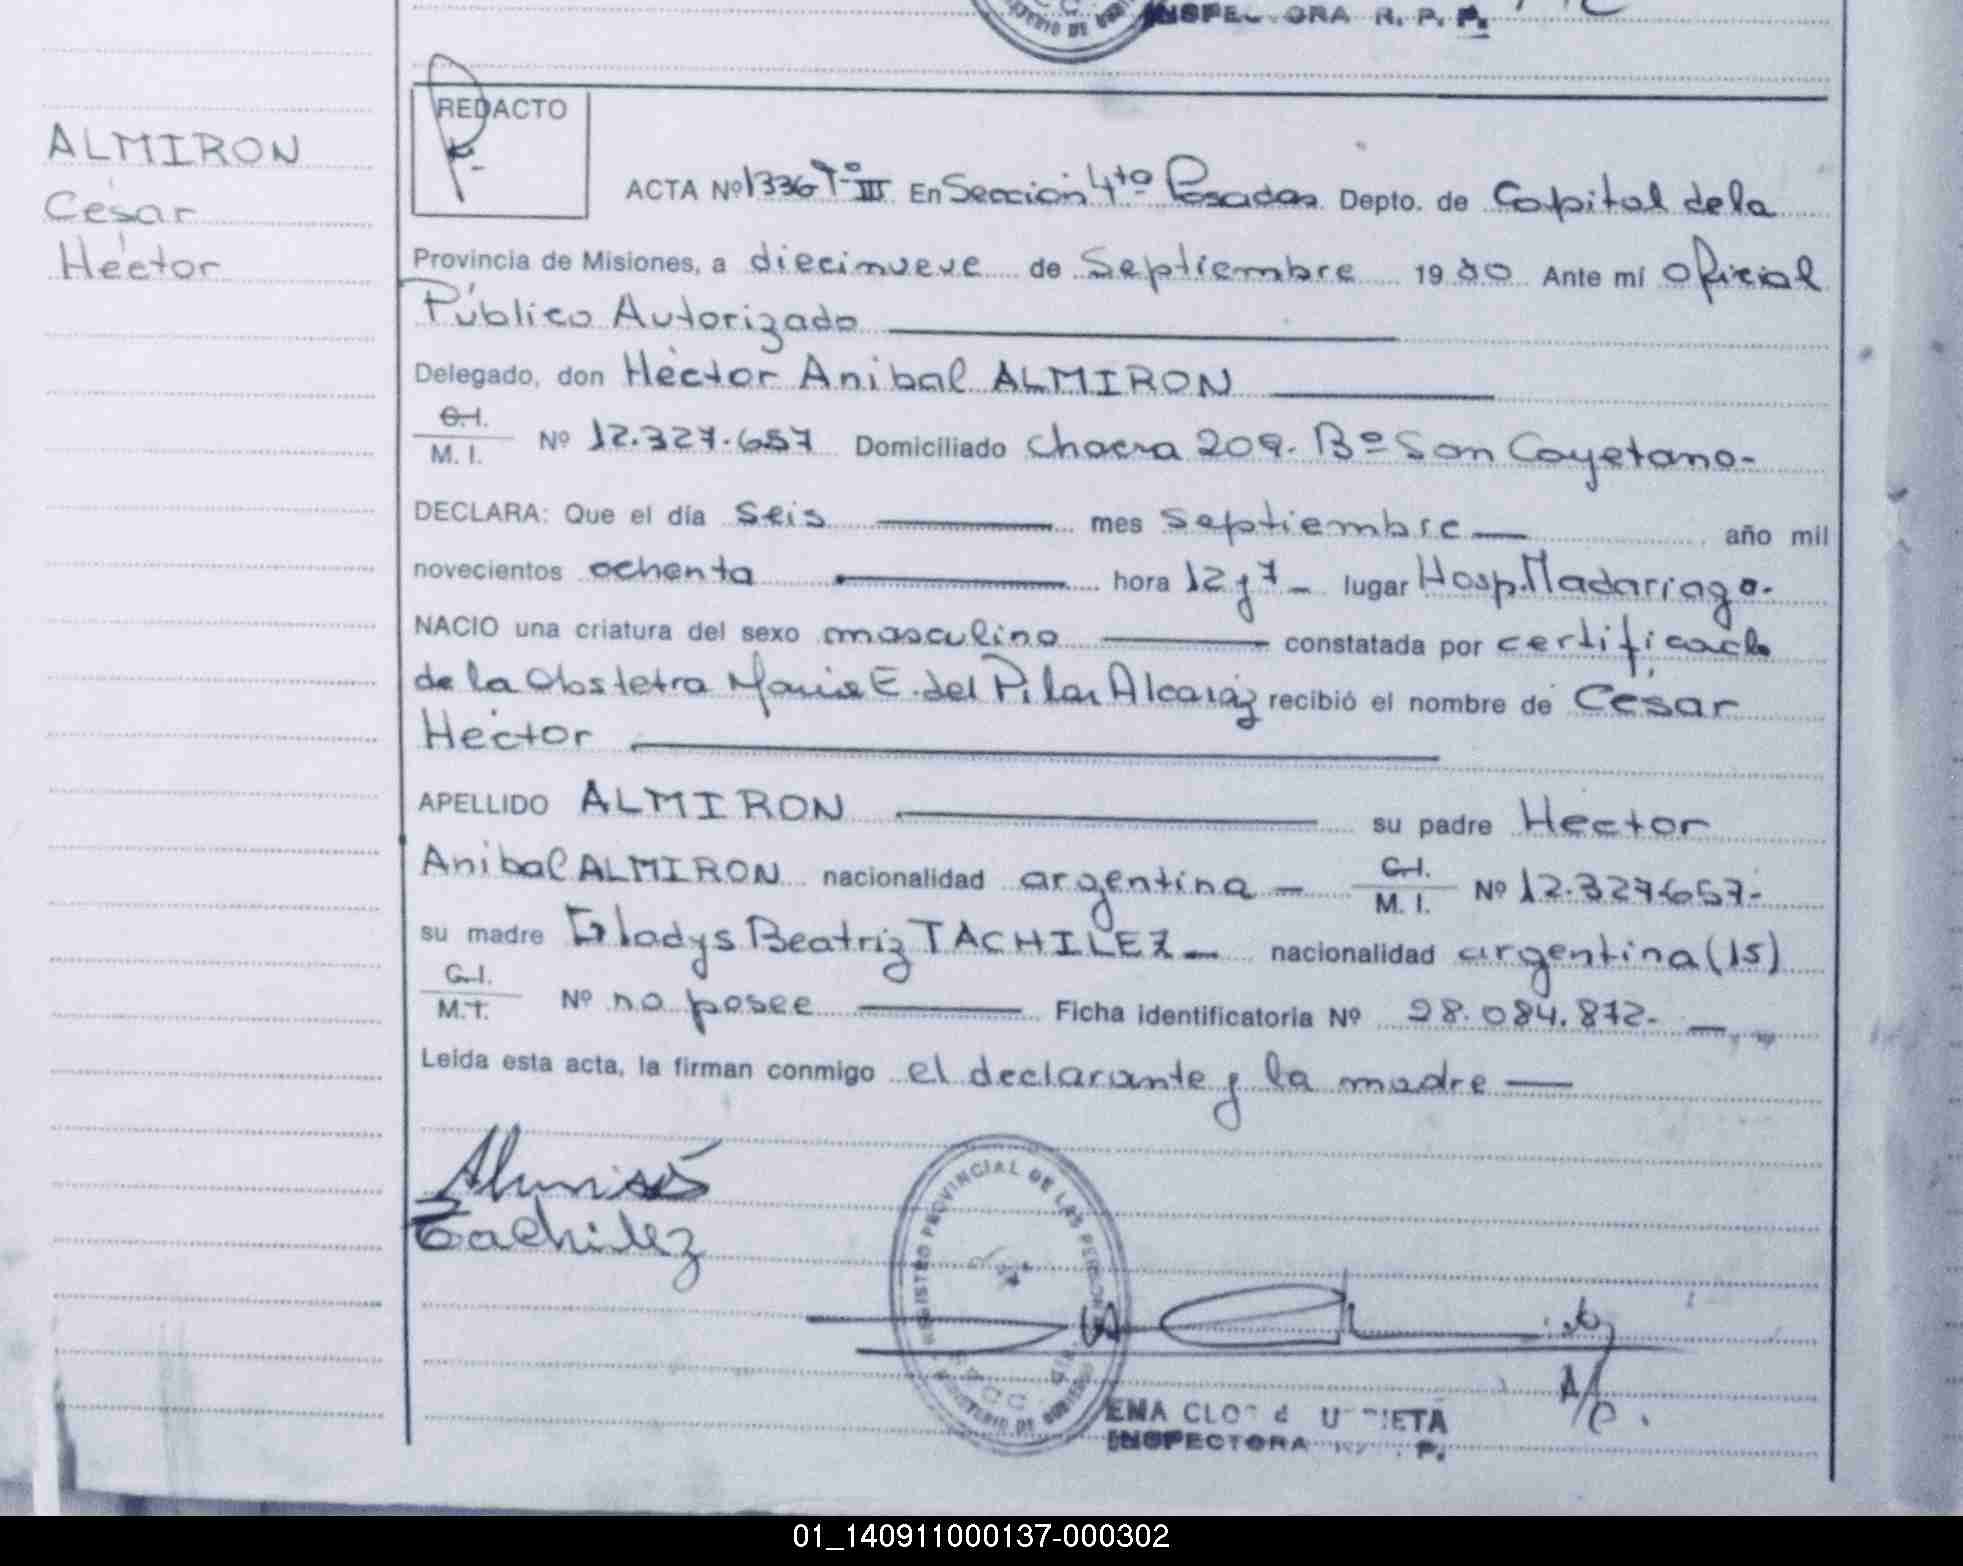 INSPECTORA R. P. P.
MINISTERIO DE
REDACTO
ALMIRON
César
Héctor
ACTA Nº 1336 Tº III En Sección 4ta Posadas Depto. de Capital de la
Provincia de Misiones, a diecinueve de Septiembre 1980 Ante mí Oficial
Público Autorizado
Delegado, don Héctor Anibal ALMIRON
C.I.
M. I. Nº 12.327.657 Domiciliado Chacra 209. Bº San Cayetano-
DECLARA: Que el día seis mes septiembre año mil
novecientos ochenta hora 12 y 7 lugar Hosp. Madariaga.
NACIO una criatura del sexo masculino constatada por certificado
de la Obstetra Maria E. del Pilar Alcaráz recibió el nombre de César
Héctor
APELLIDO ALMIRON su padre Héctor
Anibal ALMIRON nacionalidad argentina - C.I.
M. I. Nº 12.327.657-
su madre Gladys Beatriz TACHILEZ nacionalidad argentina (15)
C.I.
M.I. Nº no posee Ficha identificatoria Nº 28.084.872-
Leída esta acta, la firman conmigo el declarante y la madre
Almirón
Tachilez
REGISTRO PROVINCIAL DE LAS PERSONAS
MINISTERIO DE GOBIERNO
A/C.
EMA
INSPECTORA P.
01_140911000137-000302